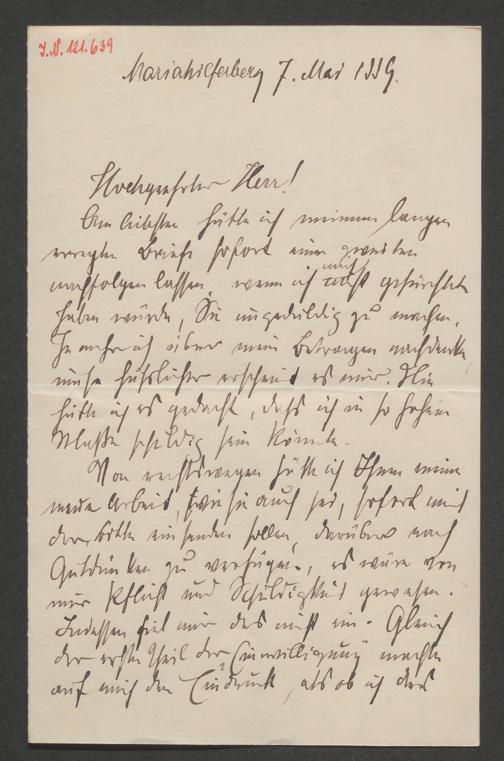 J.N. 121.639
Mariahilferberg 7. Mai 1889.
Hochgeehrter Herr!
Am liebsten hätte ich meinem langen
erregten Briefe sofort einen zweiten
nachfolgen lassen, wenn ich nicht gefürchtet
haben würde, Sie ungeduldig zu machen.
Je mehr ich über mein Betragen nachdenke,
umso häßlicher erscheint es mir. Nie
hätte ich es gedacht, daß ich in so hohem
Maße schuldig sein könnte.
Von rechtswegen hätte ich Ihnen meine
neue Arbeit, wie sie auch sei, sofort mit
der Bitte einsenden sollen, darüber nach
Gutdünken zu verfügen, es wäre von
mir Pflicht und Schuldigkeit gewesen.
Indessen fiel mir das nicht ein. Gleich
der erste Theil der Einwilligung machte
auf mich den Eindruck, als ob ich das